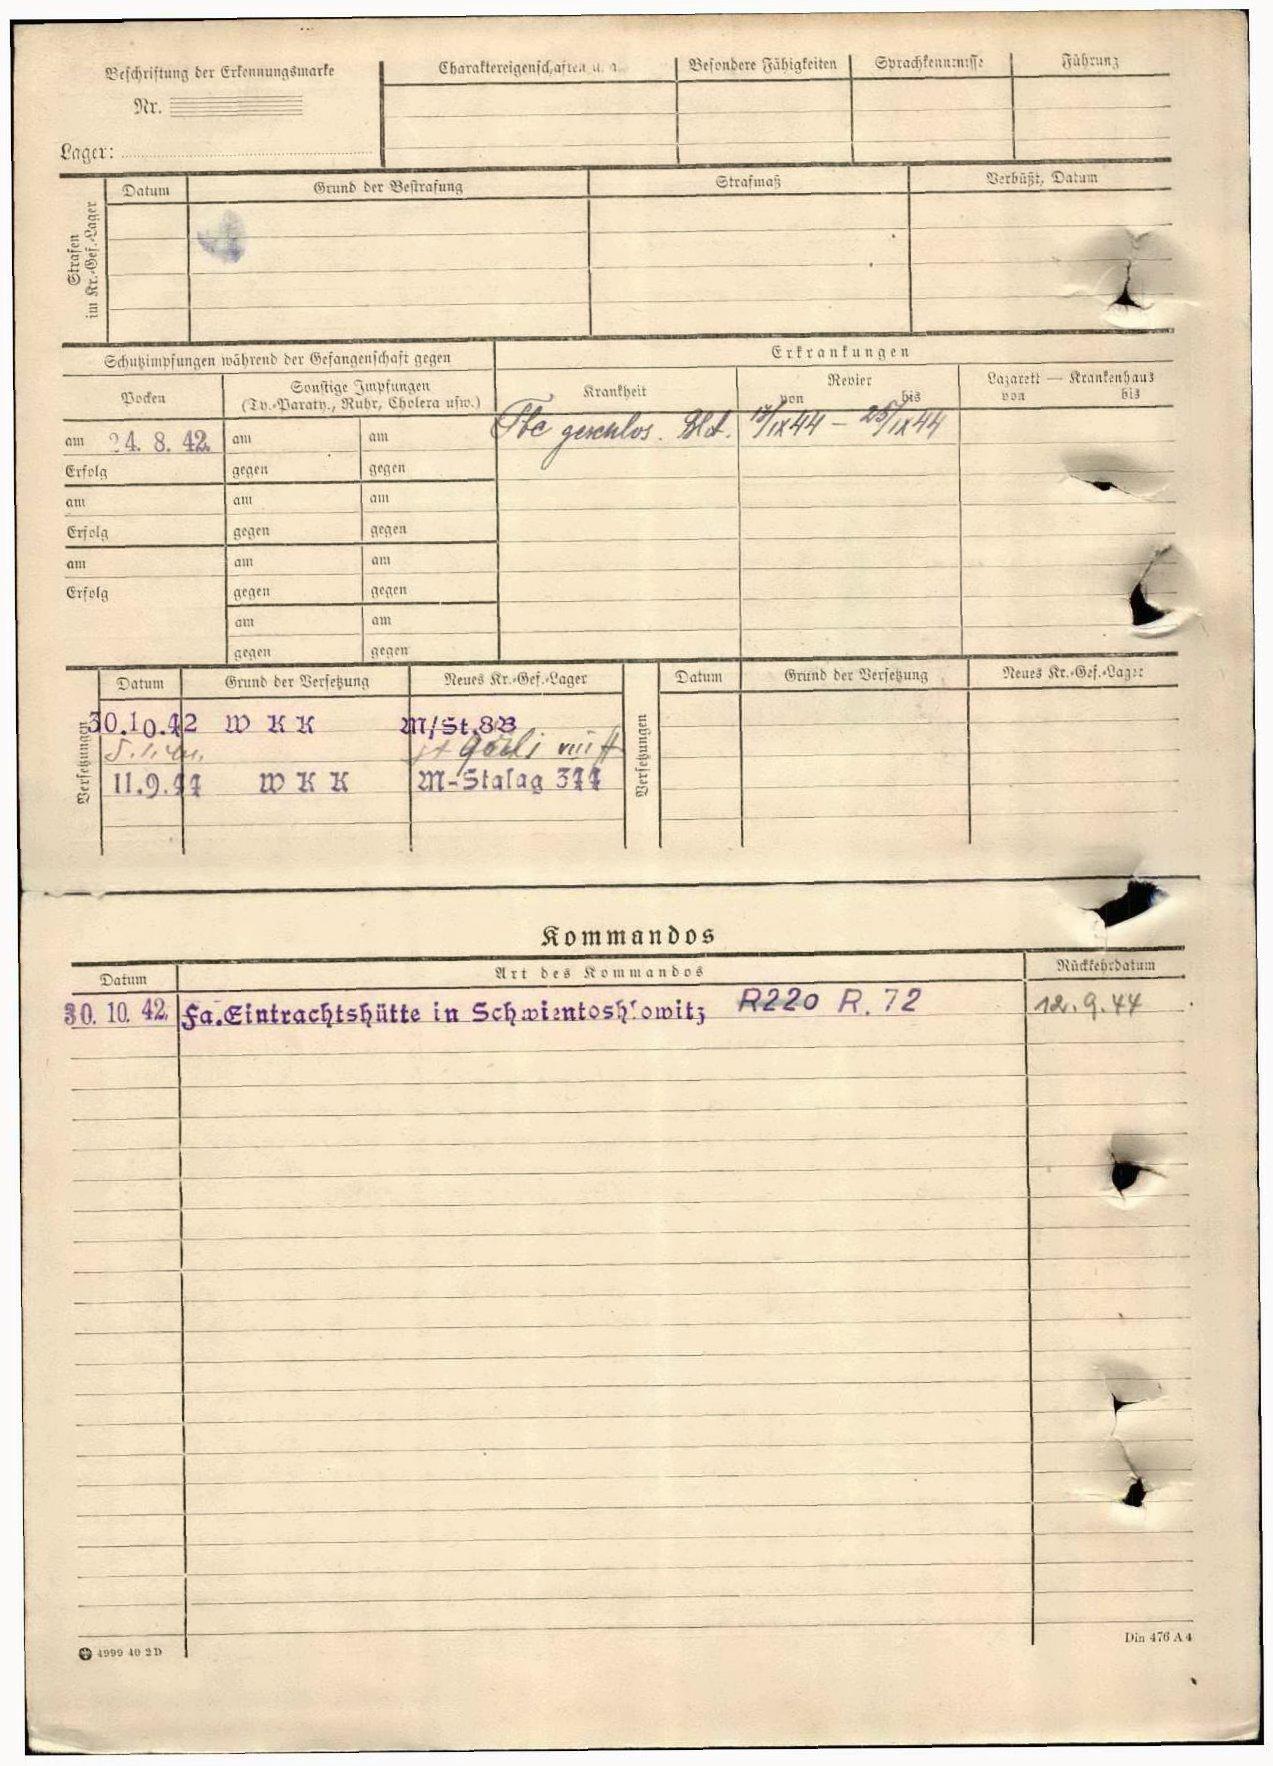 Beschriftung der Erkennungsmarke
Nr.
Lager:
Charaktereigenschaften u.
Besondere Fähigkeiten
Sprachkenntnisse
Führung
Strafen
im Kr.-Gef.-Lager
Datum
Grund der Bestrafung
Strafmaß
Verbüßt, Datum
Schutzimpfungen während der Gefangenschaft gegen
Erkrankungen
Pocken
Sonstige Impfungen
(Ty.-Paraty., Ruhr, Cholera usw.)
Krankheit
Revier
von bis
Lazarett — Krankenhaus
von bis
am 24. 8. 42. am am
Tbc geschlos. 13/IX 44 – 25/IX 44
Erfolg gegen gegen
am am am
Erfolg gegen gegen
am am am
Erfolg gegen gegen
am am
gegen gegen
Versetzungen
Datum Grund der Versetzung Neues Kr.-Gef.-Lager
30.10.42 W K K M/St.8B
11.9.44 W K K M-Stalag 344
Versetzungen
Datum Grund der Versetzung Neues Kr.-Gef.-Lager
Kommandos
Datum Art des Kommandos Rückkehrdatum
30. 10. 42. Fa. Eintrachtshütte in Schwientochlowitz R220 R. 72 12. 9. 44
4999 40 2D
Din 476 A 4